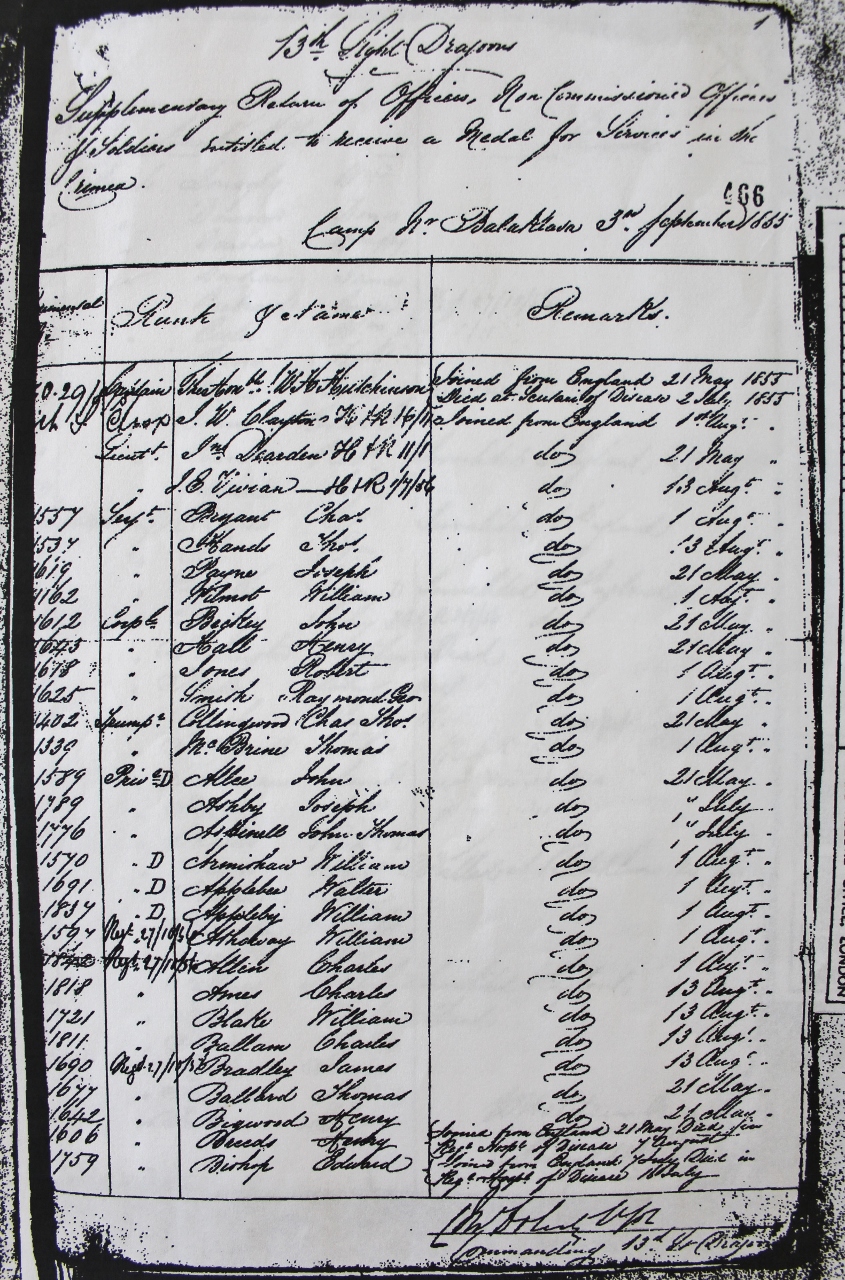 1
13th Light Dragoons
Supplementary Return of Officers, Non Commissioned Officers
& Soldiers entitled to receive a Medal for Services in the
Crimea.
466
Camp Nr Balaklava 3rd September 1855
Rank & Name Remarks.
Captain Honble W H Hutchinson Joined from England 21 May 1855
Died at Scutari of Disease 2 July 1855
J. W. Clayton Joined from England 1st Augt "
Lieutt. Jno Dearden H & R 11/1 do 21 May "
" J. E. Vivian H & R 1/7/56 do 13 Augt "
1557 Serjt. Bryant Chas. do 1 Augt "
1537 " Hands Thos. do 13 Augt "
1619 " Payne Joseph do 21 May "
1162 " Wilmot William do 1 Augt "
1612 Corpl. John do 21 May "
1645 " Hall Henry do 21 May "
1678 " Jones Robert do 1 Augt "
1625 " Smish Raymond Geo do 1 Augt "
1402 Trumpr Collingwood Chas Thos. do 21 May "
1339 " McBrine Thomas do 1 Augt "
1589 Privte D Allee John do 21 May "
1789 " Ashby Joseph do " July "
1776 " Aspinell John Thomas do " July "
1570 " D Armishaw William do 1 Augt "
1691 " D Applebee Walter do 1 Augt "
1837 " D Appleby William do 1 Augt "
1597 Regt 27/10/56 William do 1 Augt "
Regt 27/10/56 Allen Charles do 1 Augt "
1818 " Ames Charles do 13 Augt "
1721 " Blake William do 13 Augt "
1811 " Ballam Charles do 13 Augt "
1690 Regt 27/10/56 Bradley James do 13 Augt "
1677 " Ballard Thomas do 21 May "
1642 " Bigwood Henry do 21 May "
1606 " Breeds Henry Joined from England 21 May Died in
Regtl Hospl of Disease 7 August
1759 " Bishop Edward Joined from England 7 July Died in
Regtl Hospl of Disease 18 July
Commanding 13th Lt Dragoons
LONDON